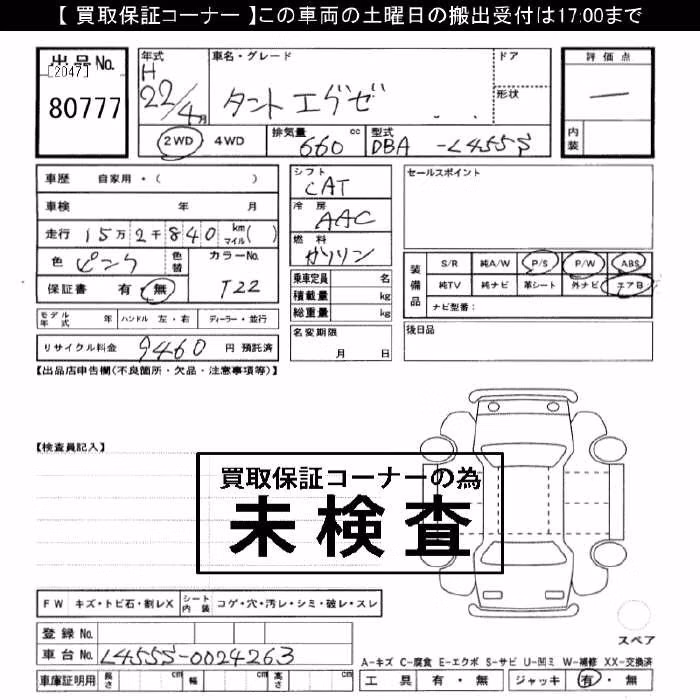 【 買取保証コーナー 】この車両の土曜日の搬出受付は17:00まで
出品No.
[2047]
80777
年式
H
22/4月
車名・グレード
タント エグゼ
ドア
形状
評価点
―
内装
2WD 4WD
排気量
660 cc
型式
DBA -L455S
車歴 自家用・( )
車検 年 月
走行 15万2千840 km マイル( )
色 ピンク
色替
カラーNo.
T22
保証書 有・無
シフト
CAT
冷房
AAC
燃料
ガソリン
乗車定員 名
積載量 kg
総重量 kg
セールスポイント
装備品
S/R 純A/W P/S P/W ABS
純TV 純ナビ 革シート 外ナビ エアB
ナビ型番:
モデル年式 年 ハンドル 左・右 ディーラー・並行
名変期限
月 日
後日品
リサイクル料金 9460 円 預託済
【出品店申告欄(不良箇所・欠品・注意事項等)】
【検査員記入】
買取保証コーナーの為
未検査
FW キズ・トビ石・割レX シート内装 コゲ・穴・汚レ・シミ・破レ・スレ
登録No.
車台No. L455S-0024263
車庫証明用 長さ cm 幅 cm 高さ cm
スペア
A-キズ C-腐食 E-エクボ S-サビ U-凹ミ W-補修 XX-交換済
工具 有・無 ジャッキ 有・無